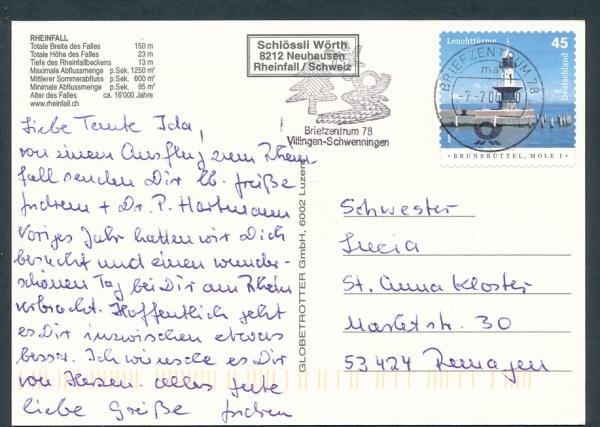 RHEINFALL
Totale Breite des Falles 150 m
Totale Höhe des Falles 23 m
Tiefe des Rheinfallbeckens 13 m
Maximale Abflussmenge p.Sek. 1250 m³
Mittlerer Sommerabfluss p.Sek. 600 m³
Minimale Abflussmenge p.Sek. 95 m³
Alter des Falles ca. 16'000 Jahre
www.rheinfall.ch
Schlössli Wörth
8212 Neuhausen
Rheinfall / Schweiz
Briefzentrum 78
Villingen-Schwenningen
Leuchttürme 45
Deutschland
BRIEFZENTRUM 78
ma
BRUNSBÜTTEL, MOLE 1
Liebe Tante Ida,
von einem Ausflug zum Rhein
fall senden Dir lb. Grüße
Andrea + Dr. P. Hartmann
Voriges Jahr hatten wir Dich
besucht und einen wunder-
schönen Tag bei Dir am Rhein
verbracht. Hoffentlich geht
es Dir inzwischen etwas
besser. Ich wünsche es Dir
von Herzen. alles Gute
liebe Grüße
GLOBETROTTER GmbH, 6002 Luzern
Schwester
Lucia
St. Anna Kloster
Marktstr. 30
53424 Remagen